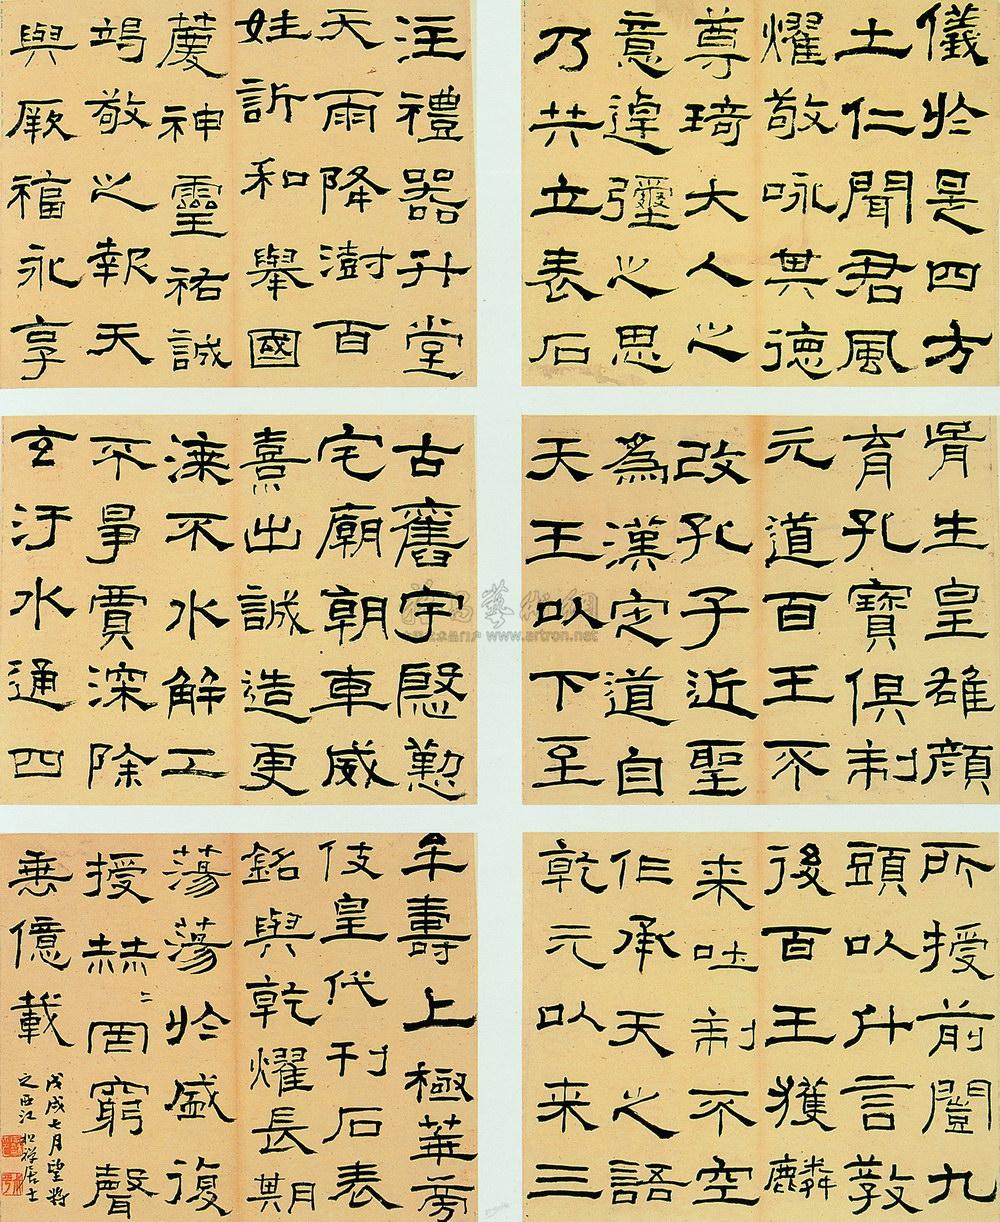 儀於是四方
土仁聞君風
燿敬咏其德
尊琦大人之
意逴彌之思
乃共立表石
胥生皇雄顏
育孔寶俱制
元道百王不
改孔子近聖
為漢定道自
天王以下至
所授前闓九
頭以什言教
後百王獲麟
来吐制不空
作承天之語
乾元以来三
注禮器升堂
天雨降澍百
姓訢和舉國
慶神靈祐誠
竭敬之報天
與厥福永享
古舊宇慇懃
宅廟朝車威
熹出誠造更
漆不水解工
不爭賈深除
玄汙水通四
牟壽上極華旁
伎皇代刊石表
銘與乾燿長期
蕩蕩於盛復
授赫〻罔窮聲
垂億載
戊戌七月望將
之西江松禪居士
www.artron.net